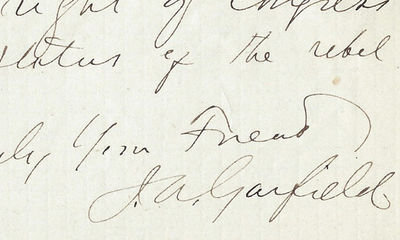 right of Congress
status of the rebel
Your Friend
J. A. Garfield